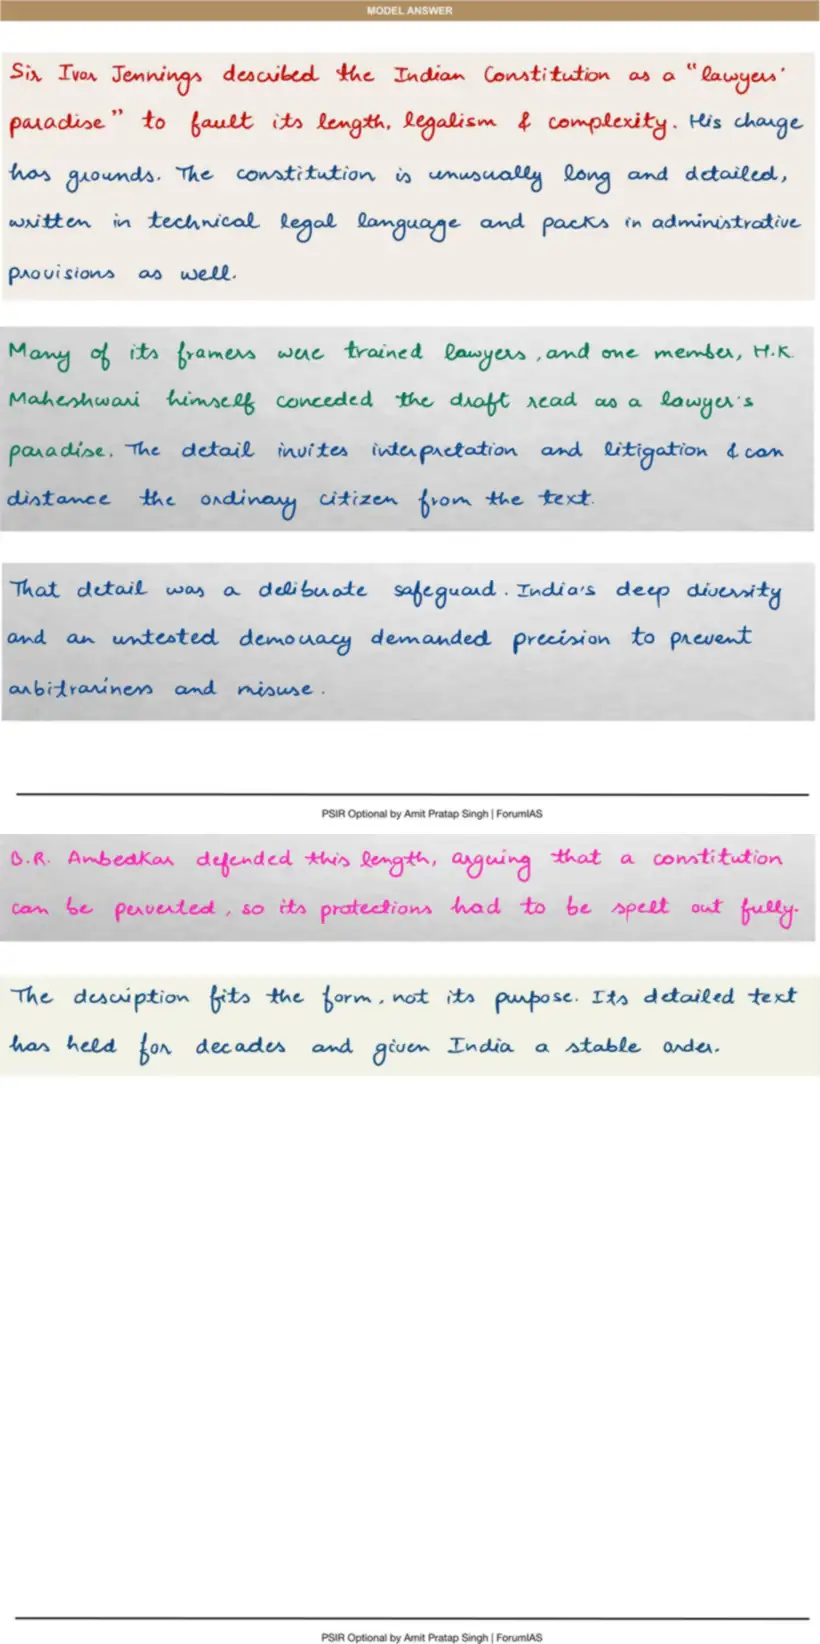 MODEL ANSWER
Sir Ivor Jennings described the Indian Constitution as a "lawyers'
paradise" to fault its length, legalism & complexity. His charge
has grounds. The constitution is unusually long and detailed,
written in technical legal language and packs in administrative
provisions as well.
Many of its framers were trained lawyers, and one member, H.K.
Maheshwari himself conceded the draft read as a lawyer's
paradise. The detail invites interpretation and litigation & can
distance the ordinary citizen from the text.
That detail was a deliberate safeguard. India's deep diversity
and an untested democracy demanded precision to prevent
arbitrariness and misuse.
PSIR Optional by Amit Pratap Singh | ForumIAS
B.R. Ambedkar defended this length, arguing that a constitution
can be perverted, so its protections had to be spelt out fully.
The description fits the form, not its purpose. Its detailed text
has held for decades and given India a stable order.
PSIR Optional by Amit Pratap Singh | ForumIAS